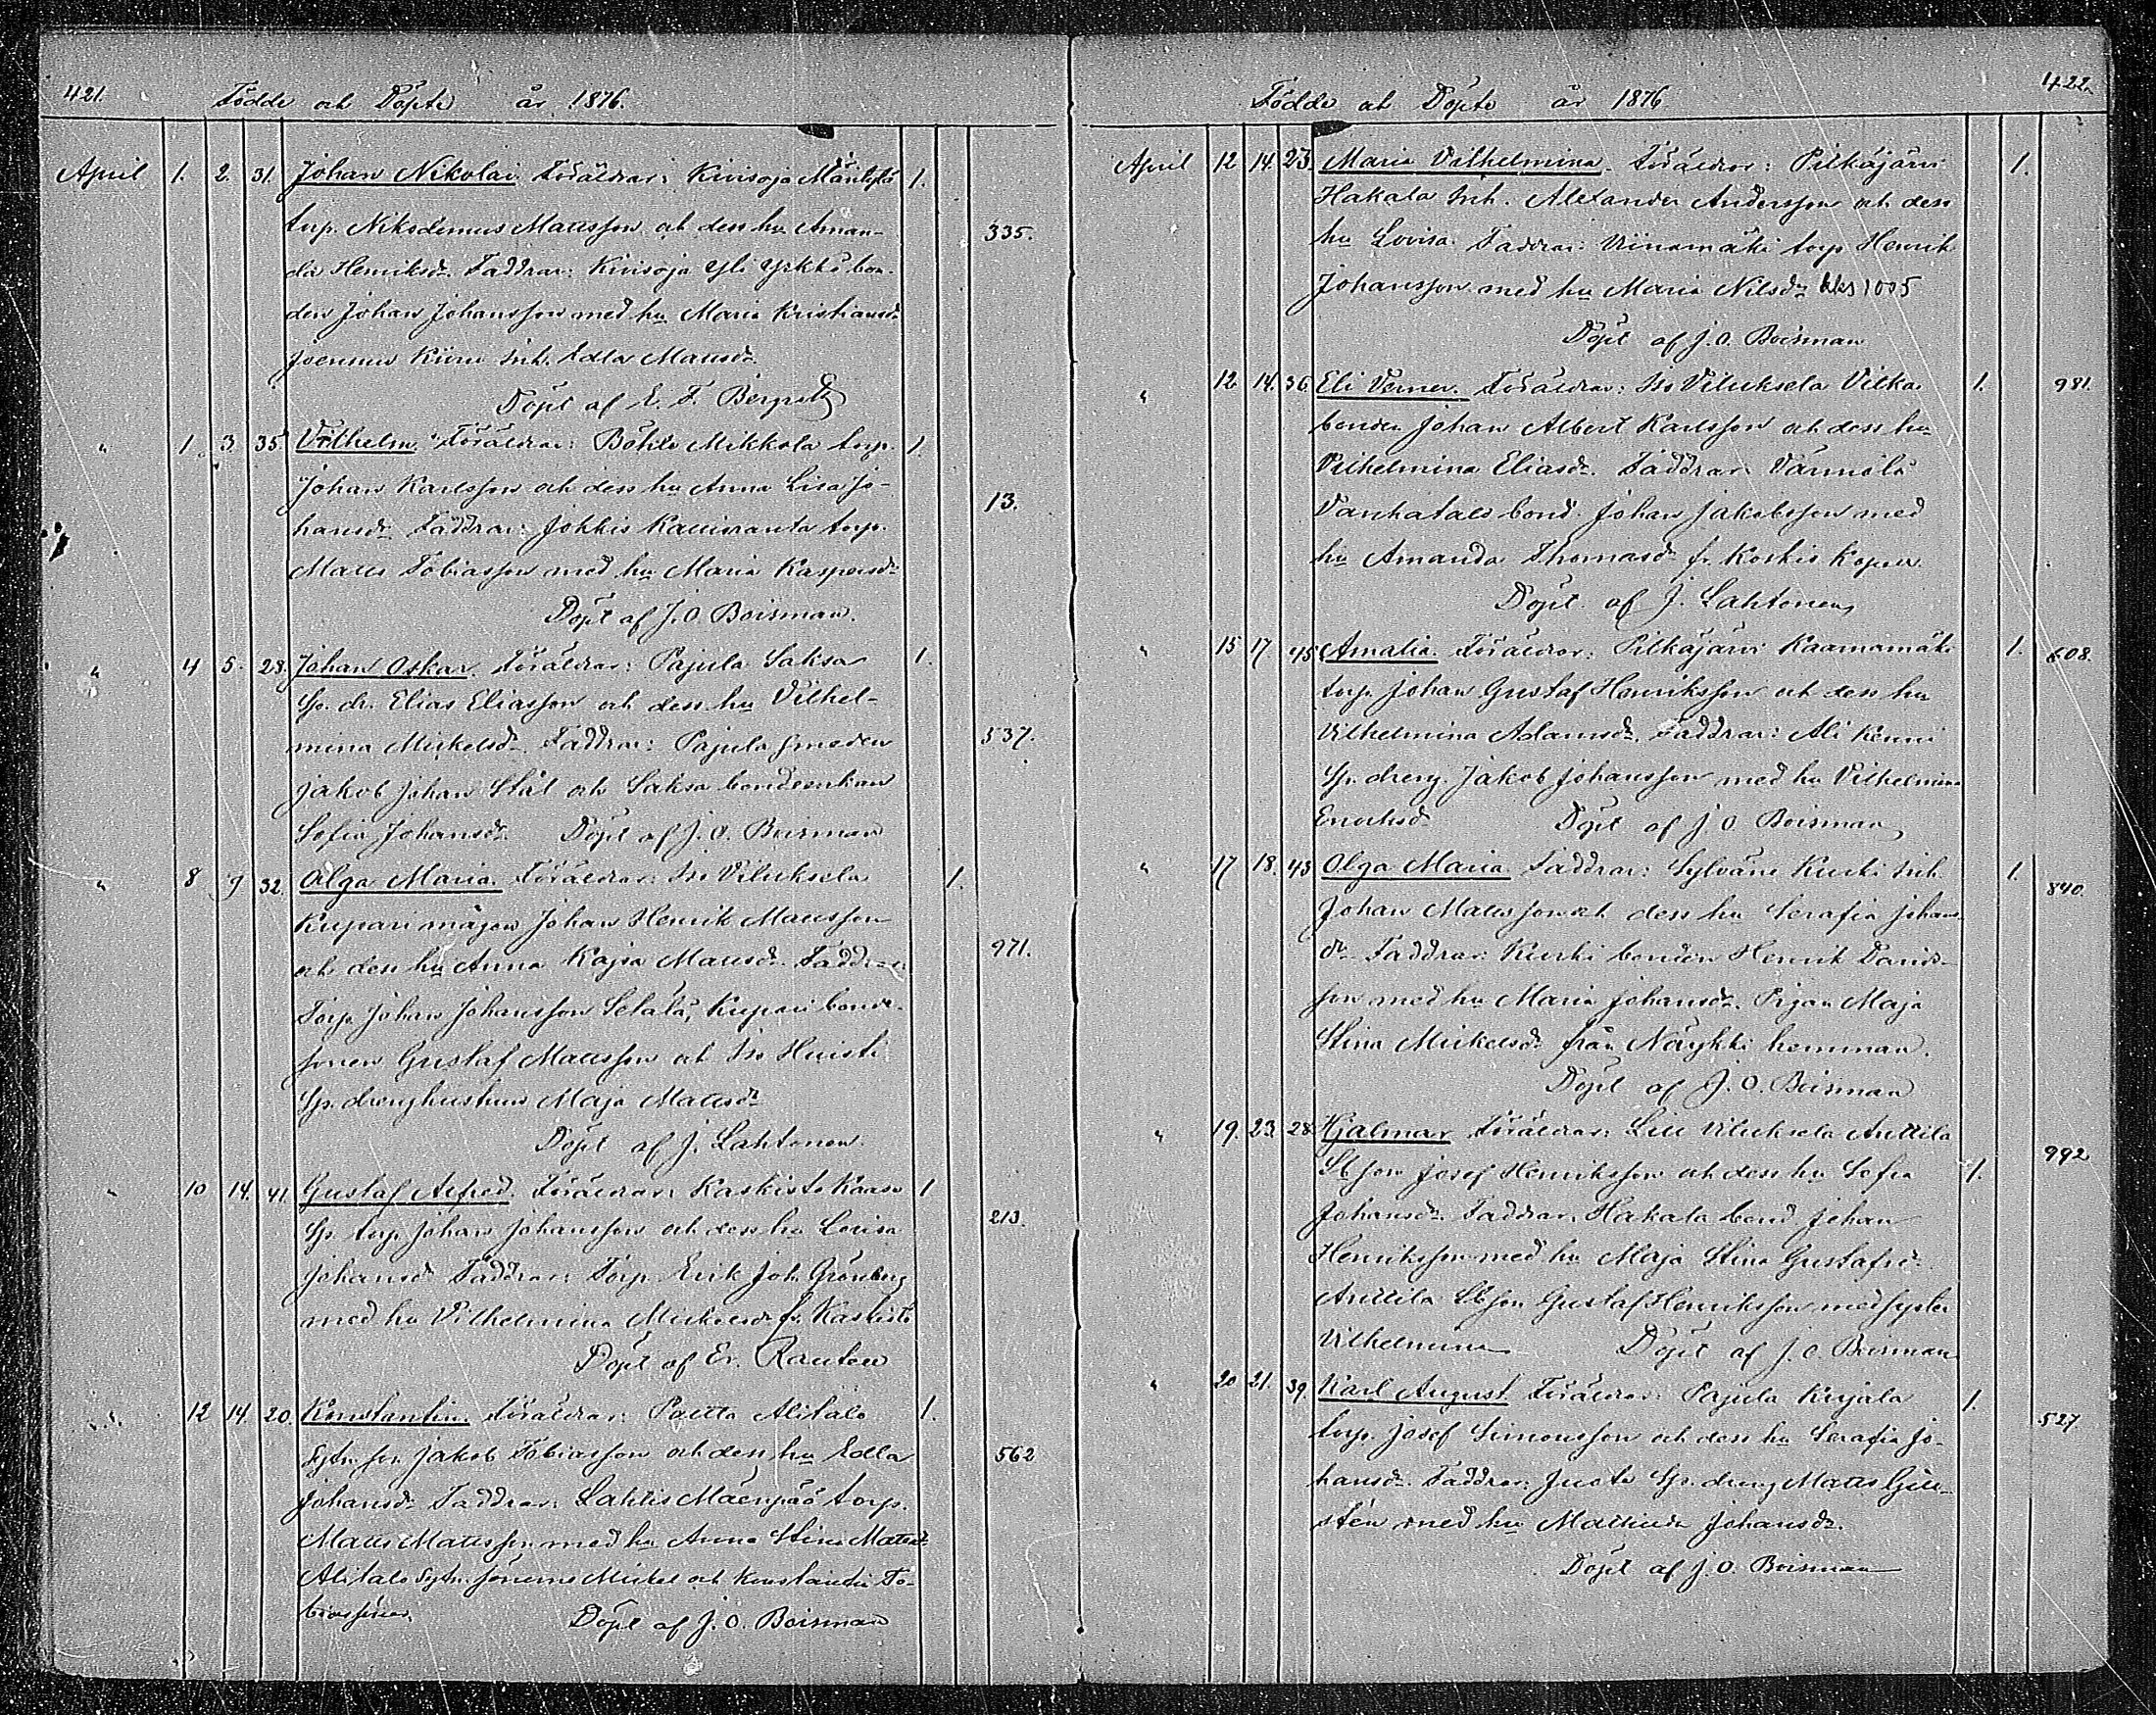 421. Födde och Döpte år 1876.
April 1. 2. 31. Johan Nikolai. Föräldrar: Kivisoja Mäntylä 1.
torp. Nikodemus Mattsson och dess hu Aman- 335.
da Henriksdr. Faddrar: Kivisoja Yli Yrkkö bon-
den Johan Johansson med hu Maria Kristiansdr
Joensuu Kiiru Inh. Edla Mattsdr.
Döpt af E. F. Bergroth
" 1 3 35 Vilhelm. Föräldrar: Böhle Mikkola torp. 1
Johan Karlsson och dess hu Anna Lisa Jo-
hansdr. Faddrar: Jokkis Kallioranta torp. 13.
Matts Tobiasson med hu Maria Kaspersdr
Döpt af J. O. Boisman.
" 4 5. 28. Johan Oskar. Föräldrar: Pajula Saksa 1.
Sp. dr. Elias Eliasson och dess hu Vilhel-
mina Mickelsdr. Faddrar: Pajula smeden 537.
Jakob Johan Stål och Saksa bondeenkan
Sofia Johansdr. Döpt af J. O. Boisman
" 8 9 32. Olga Maria. Föräldrar: Iso Viluksela 1.
Kupari mågen Johan Henrik Mattsson
och dess hu Anna Kajsa Mattsdr. Faddrar: 971.
Torp. Johan Johansson Setälä, Kupari bonde-
sonen Gustaf Mattsson och Iso Huisti
Sp. drenghustrun Maja Mattsdr
Döpt af J. Lahtonen
" 10 14. 41. Gustaf Alfred. Föräldrar: Kaskisto Kaaso 1
Sp. torp. Johan Johansson och dess hu Lovisa 213.
Johansdr. Faddrar: Torp. Erik Joh. Grönberg
med hu Vilhelmina Mickelsdr fr. Kaskisto
Döpt af Er. Rauten
" 12 14. 20. Konstantin. Föräldrar: Paltta Alitalo 1.
Sytn. son Jakob Tobiasson och dess hu Edla 562
Johansdr. Faddrar: Lahtis Mäenpää torp.
Matts Mattsson med hu Anna Stina Mattsdr
Alitalo Sytn. sönerne Mickel och Konstantin To-
biassöner. Döpt af J. O. Boisman
Födde och Döpte år 1876 422.
April 12 14. 23. Maria Vilhelmina. Föräldrar: Pitkäjärvi 1.
Hakala Inh. Alexander Andersson och dess
hu Lovisa. Faddrar: Viinamäki torp. Henrik
Johansson med hu Maria Nilsdr 1005
Döpt af J. O. Boisman
" 12 14. 36. Eli Verner. Föräldrar: Iso Viluksela Vilka 1. 981.
bonden Johan Albert Karlsson och dess hu
Vilhelmina Eliasdr. Faddrar: Vännölä
Vanhatalo bond. Johan Jakobsson med
hu Amanda Thomasdr fr. Koskis Kapell
Döpt af J. Lahtonen
" 15 17 45 Amalia. Föräldrar: Pitkäjärvi Kaamamäki 1. 608.
torp. Johan Gustaf Henriksson och dess hu
Vilhelmina Adamsdr. Faddrar: Ali Kenni
Sp. dreng. Jakob Johansson med hu Vilhelmina
Enocksdr Döpt af J. O. Boisman
" 17 18. 43 Olga Maria Faddrar: Sylväne Kurki Inh. 1. 840.
Johan Mattsson och dess hu Serafia Johans-
dr. Faddrar: Kurki bonden Henrik Davids-
son med hu Maria Johansdr. Pigan Maja
Stina Mickelsdr från Näykki hemman.
Döpt af J. O. Boisman
" 19. 23. 28 Hjalmar. Föräldrar: Lill Viluksela Anttila 992
Sbson Josef Henriksson och dess hu Sofia 1.
Johansdr. Faddrar: Hakala bond. Johan
Henriksson med hu Maja Stina Gustafsdr.
Anttila Sbson Gustaf Henriksson med syster
Vilhelmina Döpt af J. O. Boisman
" 20 21. 39. Karl August. Föräldrar: Pajula Kujala 1. 527.
torp. Josef Simonsson och dess hu Serafia Jo-
hansdr. Faddrar: Juota Sp. dreng Matts Gill-
stén med hu Mathilda Johansdr.
Döpt af J. O. Boisman